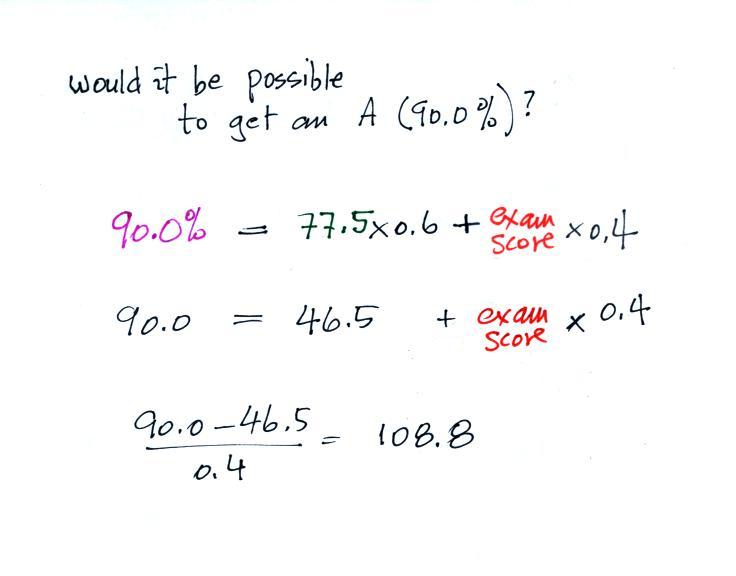 would it be possible
to get an A (90.0%)?
90.0% = 77.5×0.6 + exam score ×0.4
90.0 = 46.5 + exam score × 0.4
90.0-46.5
0.4
= 108.8